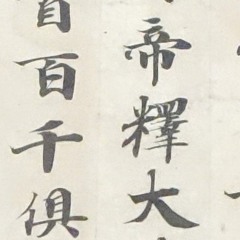 帝釋大
百千俱